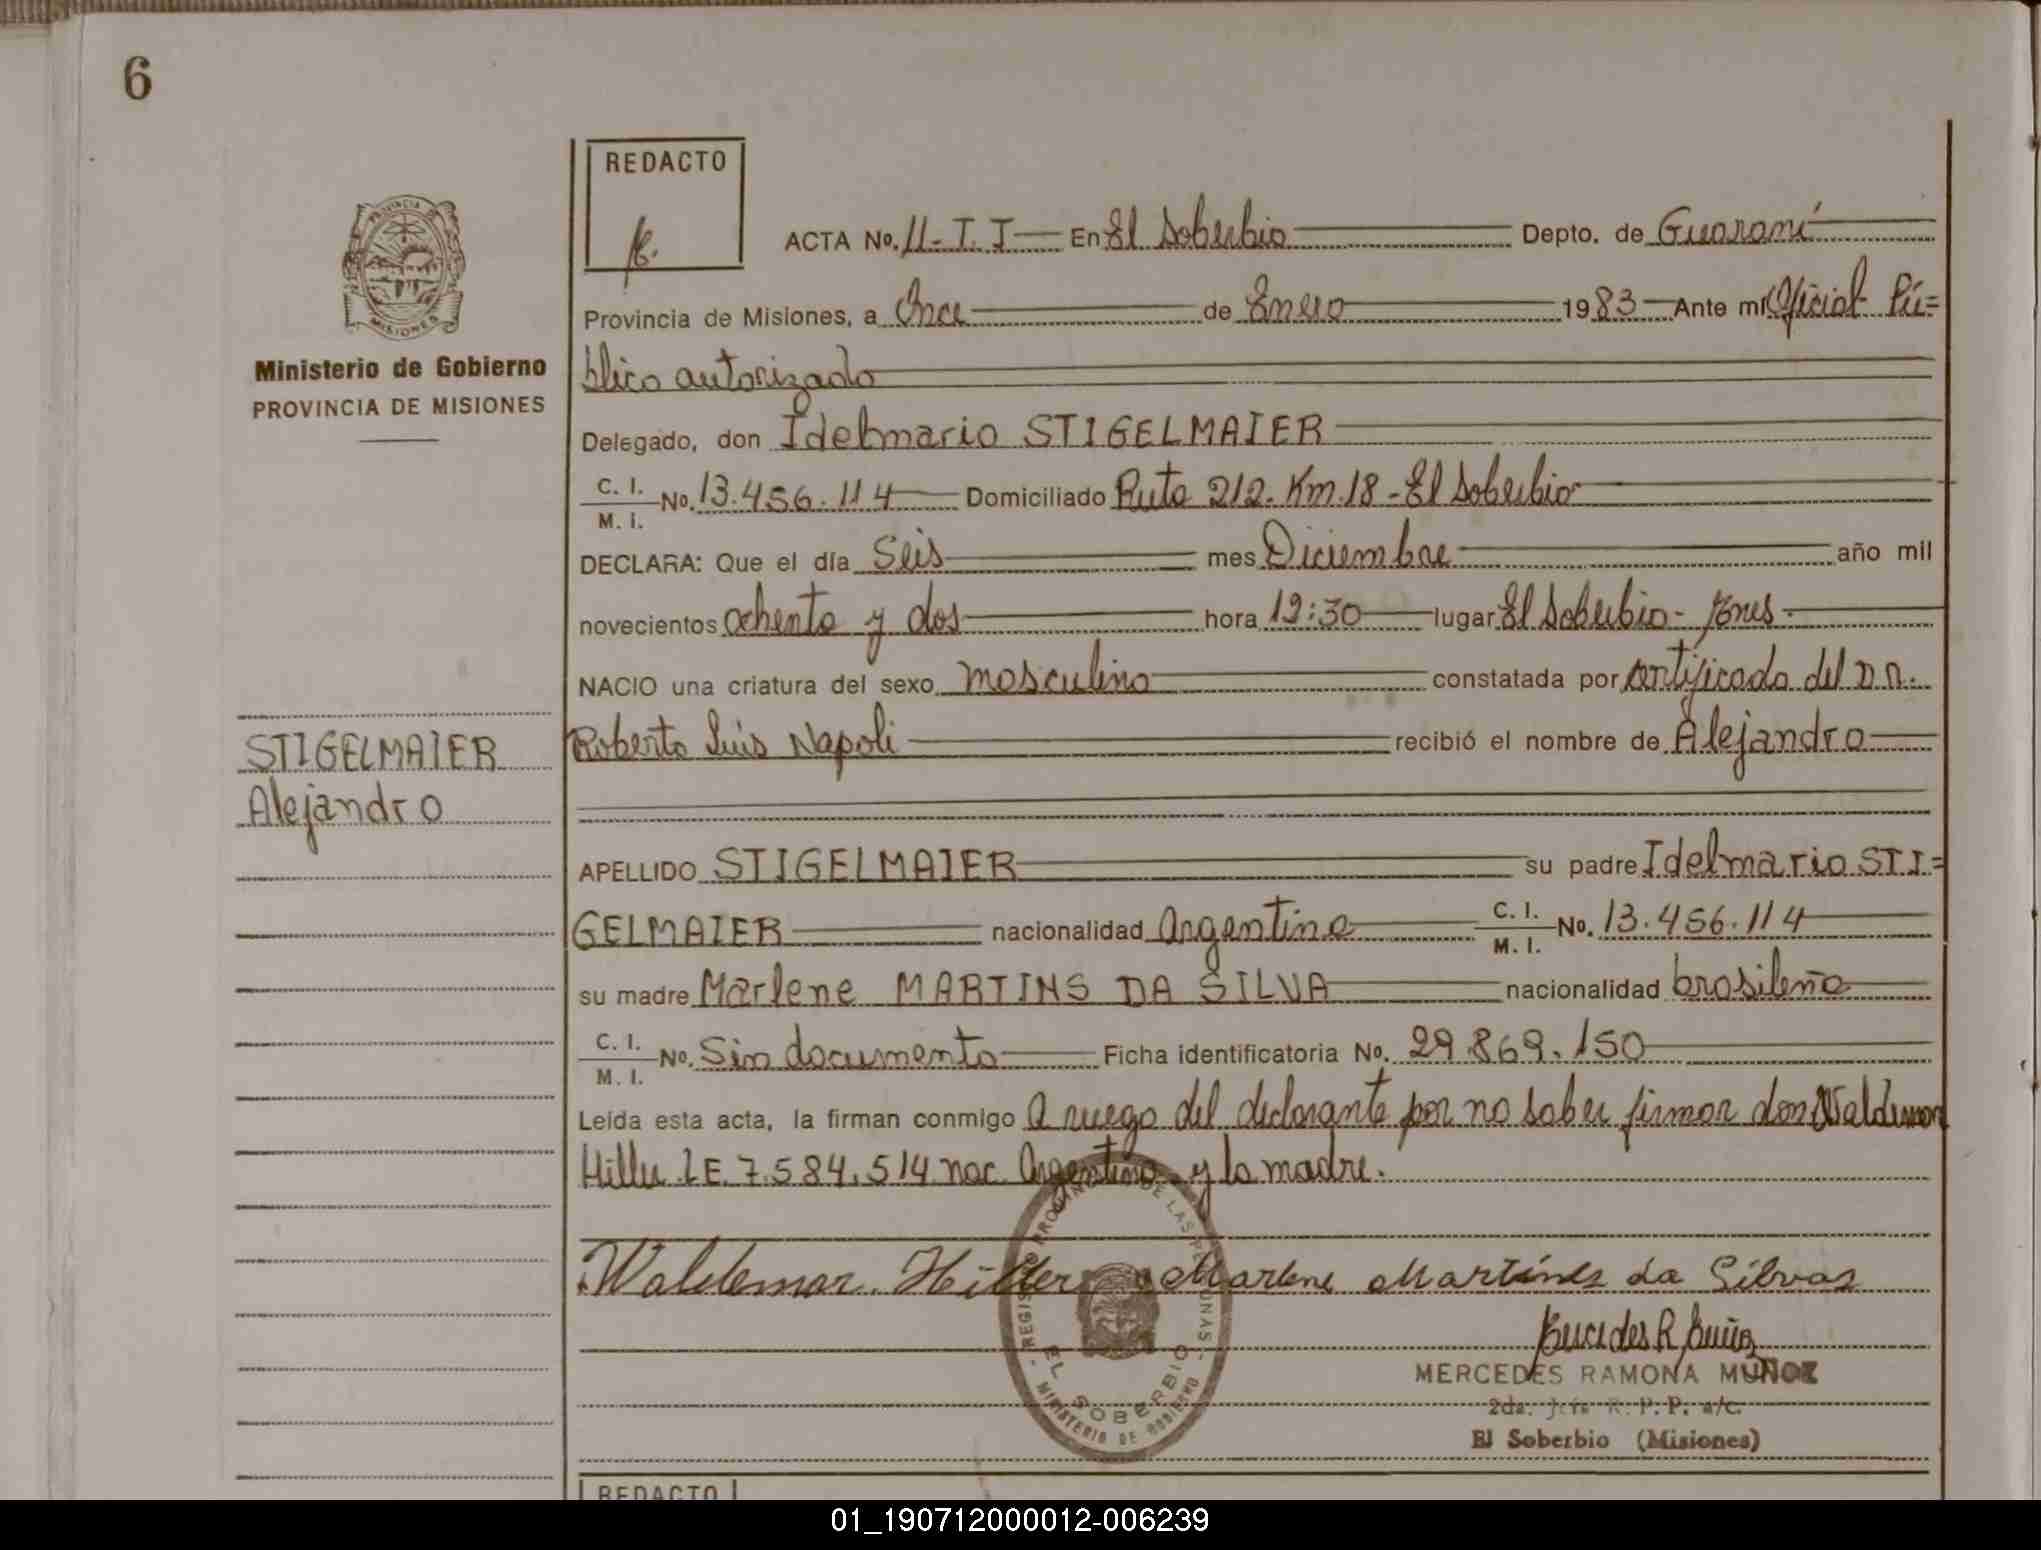 6
REDACTO
PROVINCIA DE
MISIONES
Ministerio de Gobierno
PROVINCIA DE MISIONES
ACTA No. 11-T. I En El Soberbio Depto. de Guaraní
Provincia de Misiones, a Once de Enero 1983 Ante mí Oficial Pú=
blico autorizado
Delegado, don Idelmario STIGELMAIER
C. I. / M. I. No. 13.456.114 Domiciliado Ruta 212. Km.18 - El Soberbio
DECLARA: Que el día Seis mes Diciembre año mil
novecientos ochenta y dos hora 12:30 lugar El Soberbio - Mnes -
NACIO una criatura del sexo masculino constatada por certificado del Dr.
Roberto Luis Napoli recibió el nombre de Alejandro
STIGELMAIER
Alejandro
APELLIDO STIGELMAIER su padre Idelmario STI=
GELMAIER nacionalidad Argentina C. I. / M. I. No. 13.456.114
su madre Marlene MARTINS DA SILVA nacionalidad brasileña
C. I. / M. I. No. Sin documento Ficha identificatoria No. 29.869.150
Leída esta acta, la firman conmigo A ruego del declarante por no saber firmar don Waldemar
Hiller L.E. 7.584.514 nac. Argentino y la madre.
Waldemar. Hiller Marlene Martínes da Silvas
REGISTRO PROVINCIAL DE LAS PERSONAS
EL SOBERBIO
MINISTERIO DE GOBIERNO
Mercedes R Muñoz
MERCEDES RAMONA MUÑOZ
2da. Jefe R. P. P. a/c.
El Soberbio (Misiones)
REDACTO
01_190712000012-006239